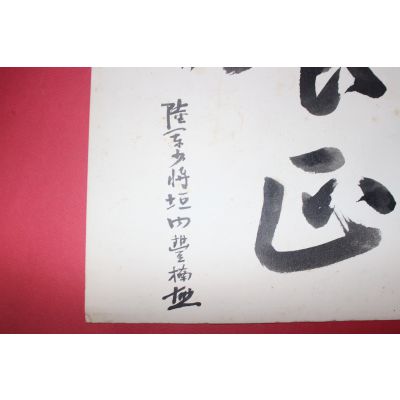 正
陸軍少将垣内豊楠